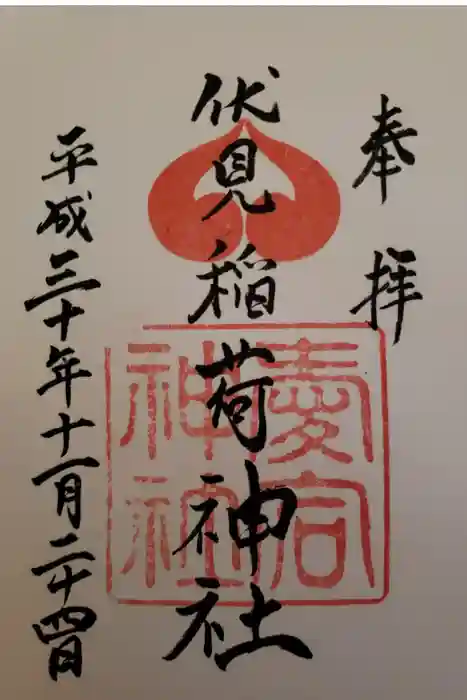 奉拝
伏見稲荷神社
愛宕
神社
平成三十年十一月二十四日